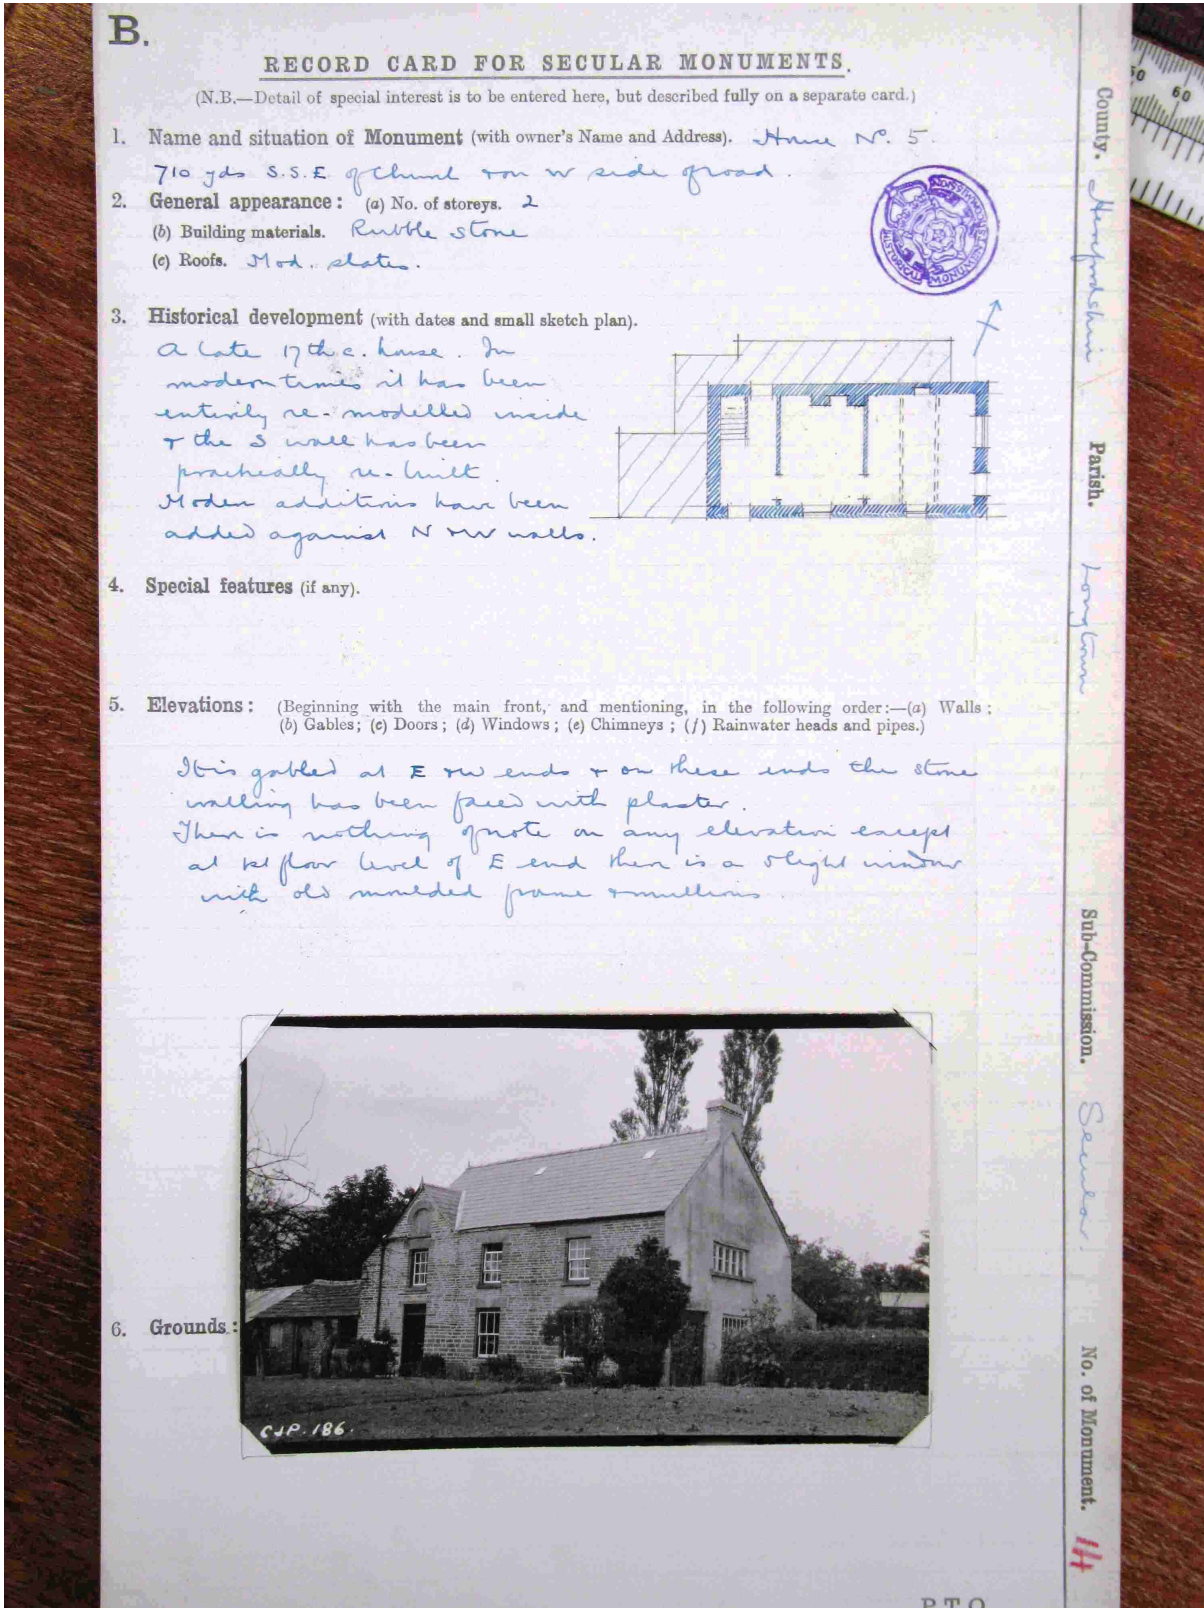 B.
RECORD CARD FOR SECULAR MONUMENTS.
(N.B.—Detail of special interest is to be entered here, but described fully on a separate card.)
1. Name and situation of Monument (with owner's Name and Address). House No. 5.
710 yds S.S.E. of Church & on W side of road.
2. General appearance: (a) No. of storeys. 2
(b) Building materials. Rubble stone
(c) Roofs. Mod. slates.
HISTORICAL MONUMENTS
3. Historical development (with dates and small sketch plan).
A late 17th c. house. In
modern times it has been
entirely re-modelled inside
& the S wall has been
practically re-built.
Modern additions have been
added against N & W walls.
4. Special features (if any).
5. Elevations: (Beginning with the main front, and mentioning, in the following order:—(a) Walls;
(b) Gables; (c) Doors; (d) Windows; (e) Chimneys; (f) Rainwater heads and pipes.)
It is gabled at E & W ends & on these ends the stone
walling has been faced with plaster.
There is nothing of note on any elevation except
at 1st floor level of E end there is a 5 light window
with old moulded frame & mullions.
6. Grounds:
CJP.186.
PTO
County. Herefordshire
Parish. Longtown
Sub-Commission. Secular.
No. of Monument. 14
50
60